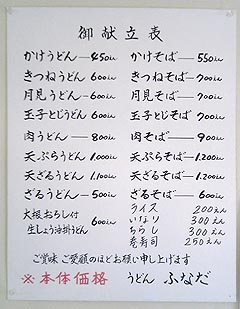 御献立表
かけうどん―450えん かけそば―550えん
きつねうどん 600えん きつねそば―700えん
月見うどん 600えん 月見そば―700えん
玉子とじうどん 600えん 玉子とじそば 700えん
肉うどん―800えん 肉そば―900えん
天ぷらうどん 1.000えん 天ぷらそば―1.200えん
天ざるうどん 1.100えん 天ざるそば―1.200えん
ざるうどん―500えん ざるそば―600えん
大根おろし付
生しょう油掛うどん 600えん
ライス 200えん
いなり 300えん
ちらし 300えん
巻寿司 250えん
ご賞味 ご愛顧のほどお願い申し上げます
※本体価格 うどん ふなだ